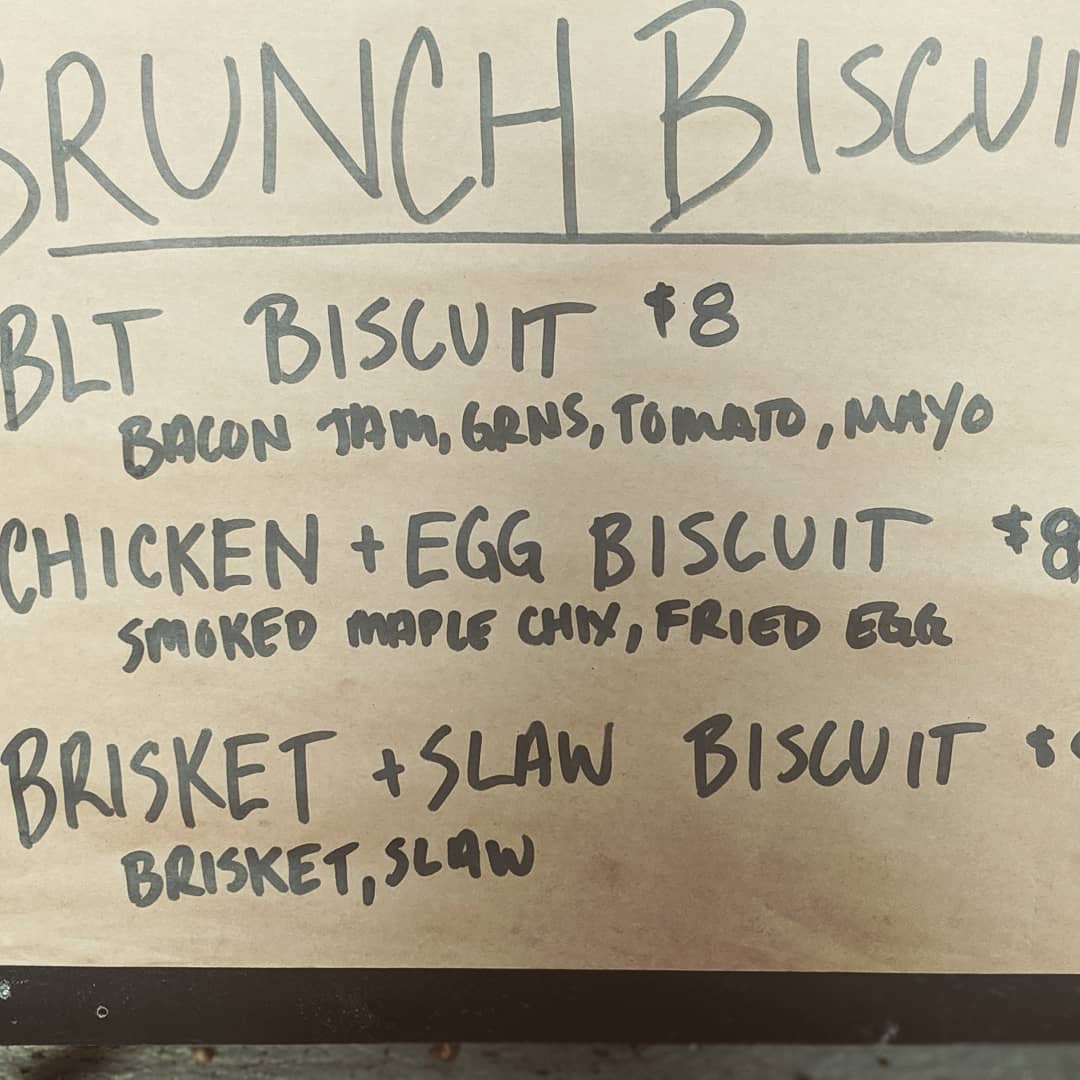 BRUNCH BISCUI
BLT BISCUIT $8
BACON JAM, GRNS, TOMATO, MAYO
CHICKEN + EGG BISCUIT $8
SMOKED MAPLE CHIX, FRIED EGG
BRISKET + SLAW BISCUIT $
BRISKET, SLAW